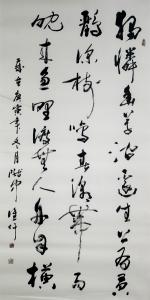 獨憐幽草澗邊生上有黃
鸝深樹鳴春潮帶雨
晚來急野渡無人舟自橫
歲在庚寅年冬月